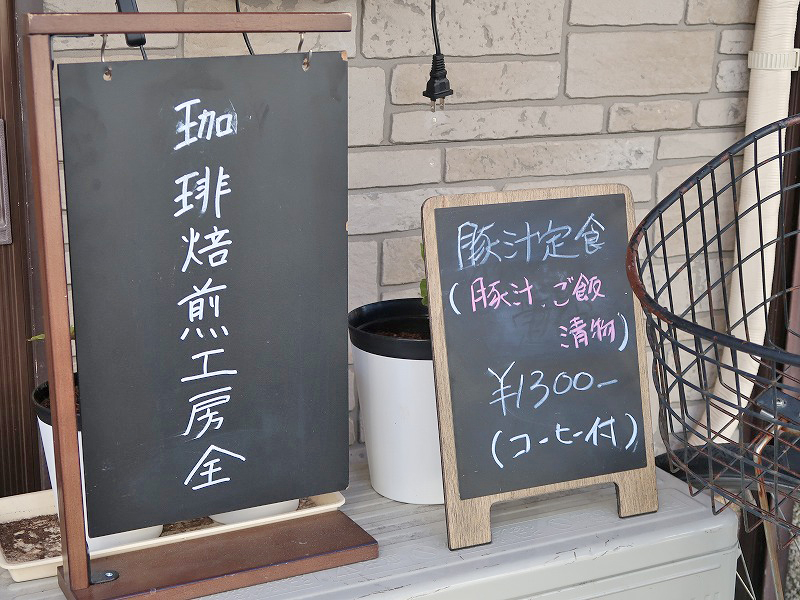 珈琲焙煎工房全
豚汁定食
(豚汁.ご飯
漬物)
¥1300-
(コーヒー付)